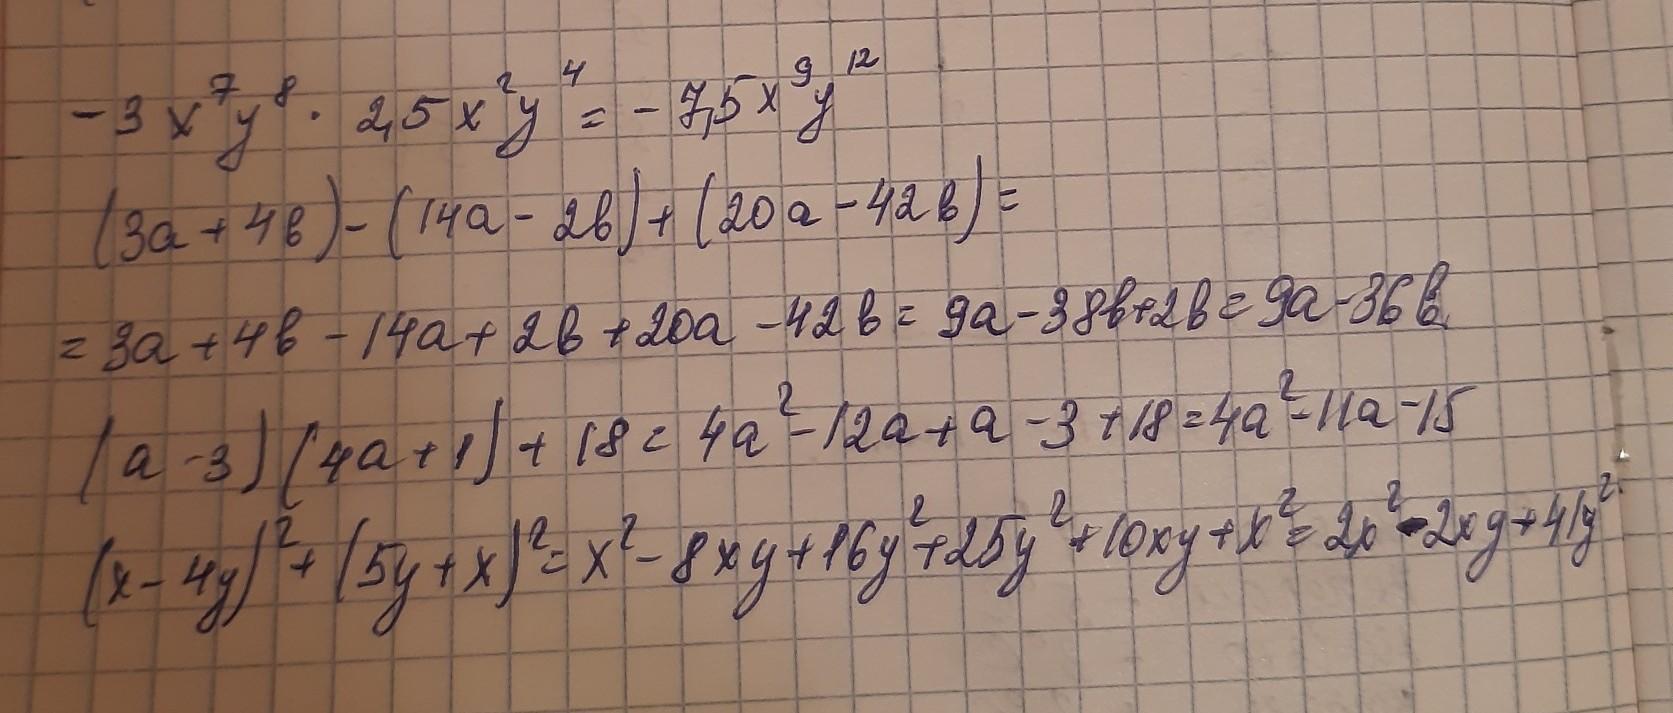 -3x⁷y⁸ · 2,5x²y⁴ = -7,5x⁹y¹²
(3a+4b)-(14a-2b)+(20a-42b)=
=3a+4b-14a+2b+20a-42b=9a-38b+2b=9a-36b
(a-3)(4a+1)+18=4a²-12a+a-3+18=4a²-11a-15
(x-4y)²+(5y+x)²=x²-8xy+16y²+25y²+10xy+x²=2x²-2xy+41y²